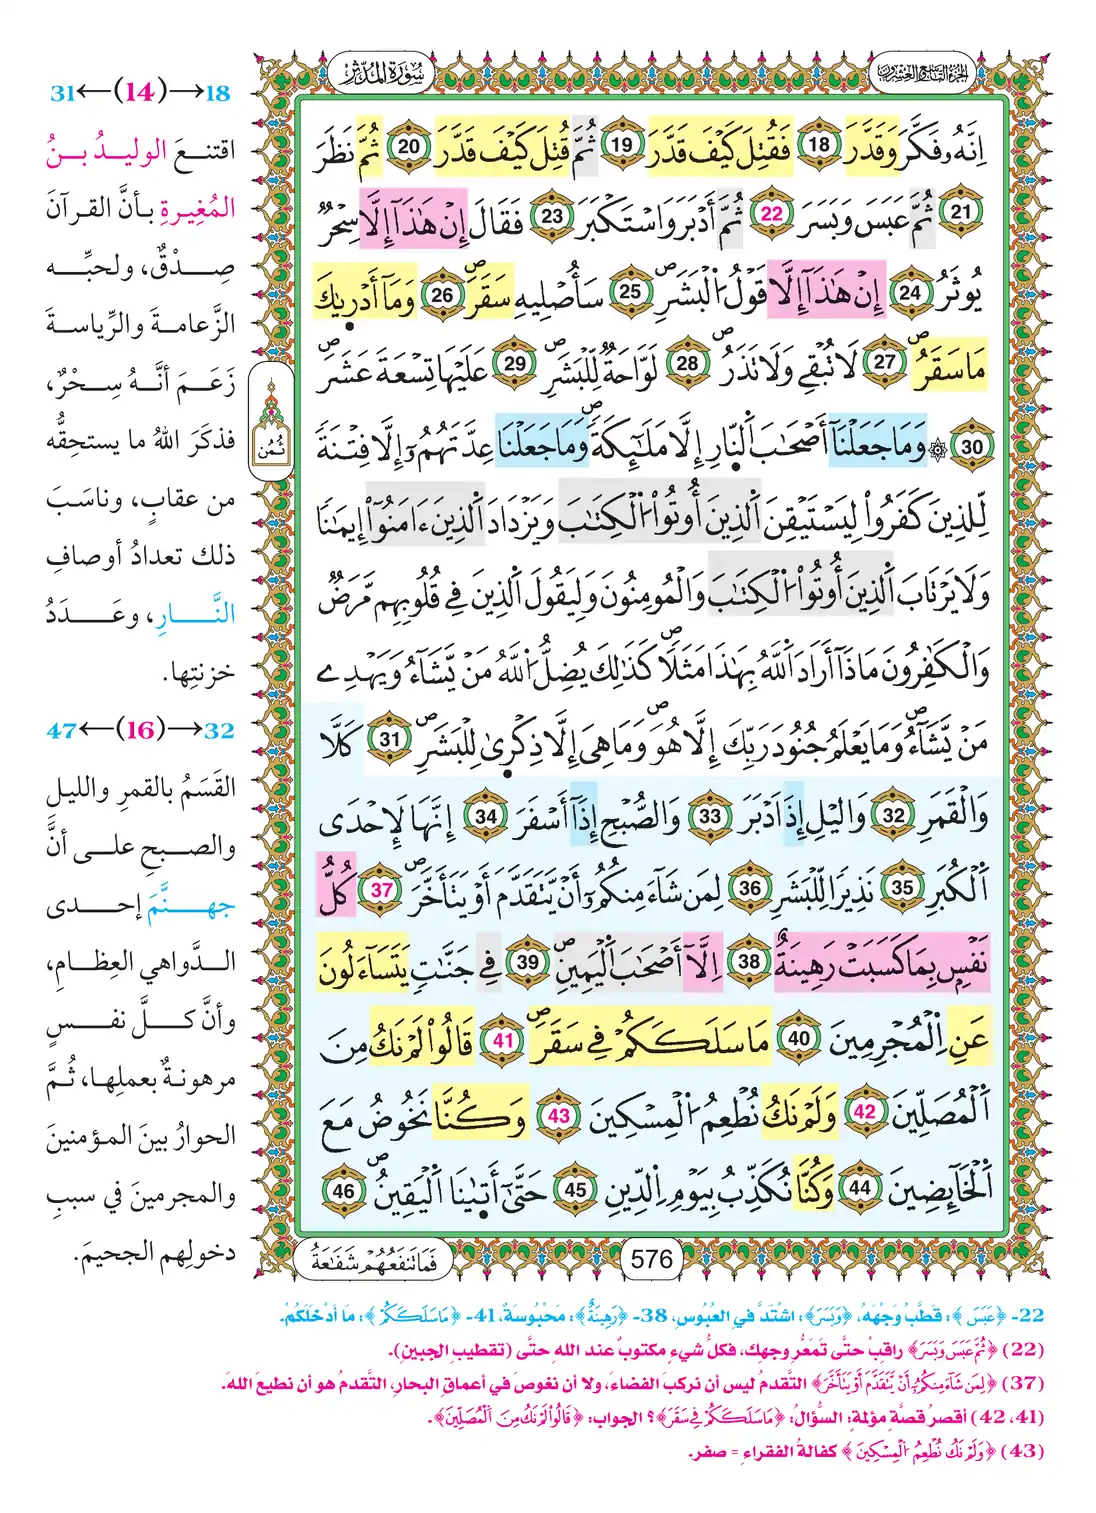 الجزء التاسع والعشرون
سُورَةُ المُدَّثِّرِ
إِنَّهُۥ فَكَّرَ وَقَدَّرَ 18 فَقُتِلَ كَيْفَ قَدَّرَ 19 ثُمَّ قُتِلَ كَيْفَ قَدَّرَ 20 ثُمَّ نَظَرَ
21 ثُمَّ عَبَسَ وَبَسَرَ 22 ثُمَّ أَدْبَرَ وَاسْتَكْبَرَ 23 فَقَالَ إِنْ هَٰذَآ إِلَّا سِحْرٌ
يُوثَرُ 24 إِنْ هَٰذَآ إِلَّا قَوْلُ الْبَشَرِ 25 سَأُصْلِيهِ سَقَرَ 26 وَمَآ أَدْرِىٰكَ
مَا سَقَرُ 27 لَا تُبْقِے وَلَا تَذَرُ 28 لَوَّاحَةٌ لِّلْبَشَرِ 29 عَلَيْهَا تِسْعَةَ عَشَرَ
30 ۞ وَمَا جَعَلْنَآ أَصْحَٰبَ اَلنّ۪ارِ إِلَّا مَلَٰٓئِكَةً وَمَا جَعَلْنَا عِدَّتَهُمُۥٓ إِلَّا فِتْنَةً
لِّلَّذِينَ كَفَرُواْ لِيَسْتَيْقِنَ اَلَّذِينَ أُوتُواْ اُلْكِتَٰبَ وَيَزْدَادَ اَلَّذِينَ ءَامَنُوٓاْ إِيمَٰنًا
وَلَا يَرْتَابَ اَلَّذِينَ أُوتُواْ اُلْكِتَٰبَ وَالْمُومِنُونَ وَلِيَقُولَ اَلَّذِينَ فِے قُلُوبِهِم مَّرَضٌ
وَالْكَٰفِرُونَ مَاذَآ أَرَادَ اَللَّهُ بِهَٰذَا مَثَلًا كَذَٰلِكَ يُضِلُّ اُللَّهُ مَنْ يَّشَآءُ وَيَهْدِے
مَنْ يَّشَآءُ وَمَا يَعْلَمُ جُنُودَ رَبِّكَ إِلَّا هُوَ وَمَا هِىَ إِلَّا ذِكْرِىٰ لِلْبَشَرِ 31 كَلَّا
وَالْقَمَرِ 32 وَالَيْلِ إِذَ اَدْبَرَ 33 وَالصُّبْحِ إِذَآ أَسْفَرَ 34 إِنَّهَا لَإِحْدَى
اَلْكُبَرِ 35 نَذِيرًا لِّلْبَشَرِ 36 لِمَن شَآءَ مِنكُمُۥٓ أَنْ يَّتَقَدَّمَ أَوْ يَتَأَخَّرَ 37 كُلُّ
نَفْسٍۢ بِمَا كَسَبَتْ رَهِينَةٌ 38 اِلَّآ أَصْحَٰبَ اَلْيَمِينِ 39 فِے جَنَّٰتٍ يَتَسَآءَلُونَ
عَنِ اِلْمُجْرِمِينَ 40 مَا سَلَكَكُمْ فِے سَقَرَ 41 قَالُواْ لَمْ نَكُ مِنَ
اَلْمُصَلِّينَ 42 وَلَمْ نَكُ نُطْعِمُ اُلْمِسْكِينَ 43 وَكُنَّا نَخُوضُ مَعَ
اَلْخَآئِضِينَ 44 وَكُنَّا نُكَذِّبُ بِيَوْمِ اِلدِّينِ 45 حَتَّىٰٓ أَتَىٰنَا اَلْيَقِينُ 46
ثُمُن
576
فَمَا تَنفَعُهُمْ شَفَٰعَةُ
31←(14)→18
اقتنعَ الوليدُ بنُ
المُغِيرةِ بأنَّ القرآنَ
صِدْقٌ، ولحبِّه
الزَّعامةَ والرِّياسةَ
زَعَمَ أنَّهُ سِحْرٌ،
فذكَرَ اللهُ ما يستحِقُّه
من عقابٍ، وناسَبَ
ذلك تعدادُ أوصافِ
النَّارِ، وعَدَدُ
خزنتِها.
47←(16)→32
القَسَمُ بالقمرِ والليلِ
والصبحِ على أنَّ
جهنَّمَ إحدى
الدَّواهي العِظامِ،
وأنَّ كلَّ نفسٍ
مرهونةٌ بعملِها، ثُمَّ
الحوارُ بينَ المؤمنينَ
والمجرمينَ في سببِ
دخولِهم الجحيمَ.
22- ﴿عَبَسَ﴾: قَطَّبَ وَجْهَهُ، ﴿وَبَسَرَ﴾: اشْتَدَّ في العُبُوسِ، 38- ﴿رَهِينَةٌ﴾: مَحْبُوسَةٌ، 41- ﴿مَا سَلَكَكُمْ﴾: مَا أَدْخَلَكُمْ.
(22) ﴿ثُمَّ عَبَسَ وَبَسَرَ﴾ راقِبْ حتَّى تَمَعُّرِ وجهِك، فكلُّ شيءٍ مكتوبٌ عند اللهِ حتَّى (تقطيبِ الجبينِ).
(37) ﴿لِمَن شَآءَ مِنكُمُۥٓ أَنْ يَّتَقَدَّمَ أَوْ يَتَأَخَّرَ﴾ التَّقدمُ ليس أن نركبَ الفضاءَ، ولا أن نغوصَ في أعماقِ البحارِ، التَّقدمُ هو أن نطيعَ اللهَ.
(41، 42) أقصرُ قصَّةٍ مؤلمة: السُّؤالُ: ﴿مَا سَلَكَكُمْ فِے سَقَرَ﴾؟ الجواب: ﴿قَالُواْ لَمْ نَكُ مِنَ اَلْمُصَلِّينَ﴾.
(43) ﴿وَلَمْ نَكُ نُطْعِمُ اُلْمِسْكِينَ﴾ كفالةُ الفقراءِ = صفر.